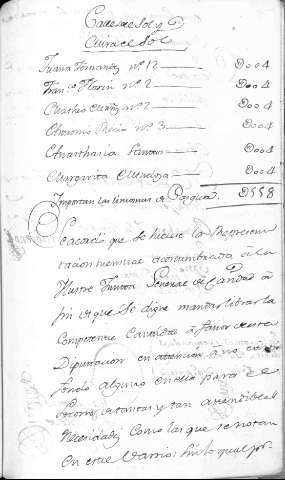 Calle de Sol y
Juana Fernandez nº 12 — D004
Franco Florin nº 2 — D004
Matheo Muñz nº 2 — D004
Antonio Ruiz nº 3 — D004
Anasthasia Santos — D004
Margarita Mendoza — D004
Importan las limosnas de Pasqua. D558
Se acordó que se hiciese la Represen
tacion mensual acostumbrada á la
Ilustre Junta General de Caridad á
fin de que se digne mandar librar la
Competente Cantidad á favor de esta
Diputacion en atencion a no
fondo alguno en ella para el
Socorro de tantas y tan atendibles
Necesidades como las que se notan
en este Varrio: Sin lo qual